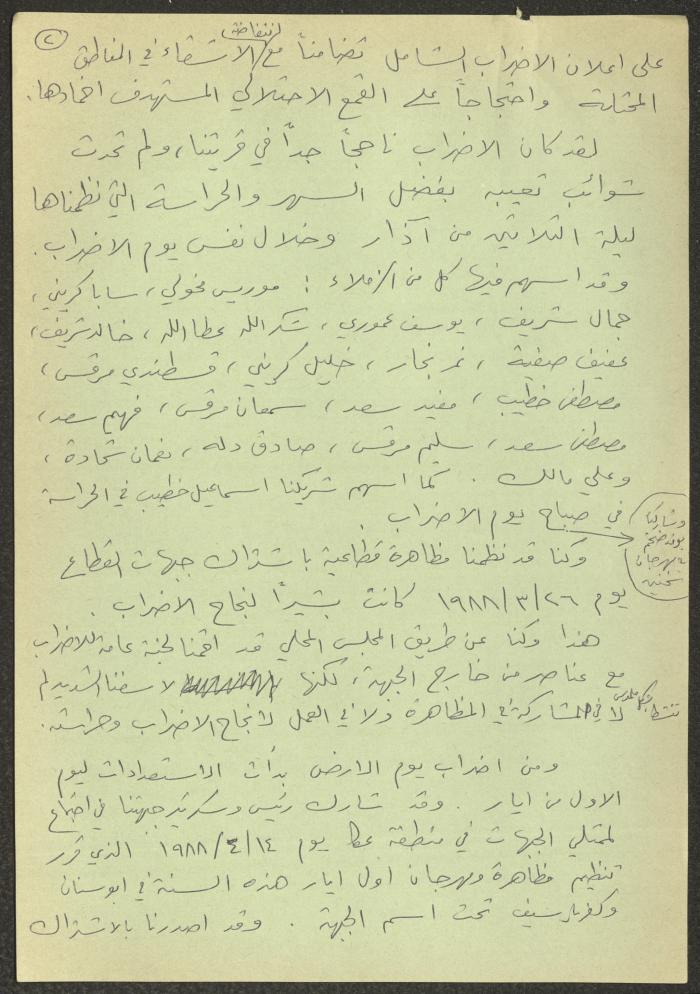 ٢
على اعلان الاضراب الشامل تضامناً مع انتفاضة الاشقاء في المناطق
المحتلة واحتجاجاً على القمع الاحتلالي المستهدف اخمادها.
لقد كان الاضراب ناجحاً جداً في قريتنا، ولم تحدث
شوائب تعيبه بفضل السهر والحراسة التي نظمناها
ليلة الثلاثين من آذار وخلال نفس يوم الاضراب.
وقد اسهم فيها كل من الزملاء: موريس مخولي، سابا كريني،
جمال شريف، يوسف عموري، شكر الله عطا الله، خالد شريف،
عفيف صفية، نمر نجار، خليل كريني، قسطندي مرقس،
مصطفى خطيب، مفيد سعد، سمعان مرقس، فهيم سعد،
مصطفى سعد، سليم مرقس، صادق دله، نعمان شحادة،
وعلي مالك. كما اسهم شريكنا اسماعيل خطيب في الحراسة
في صباح يوم الاضراب.
وكنا قد نظمنا مظاهرة قطاعية باشتراك جبهات القطاع
يوم ٢٦/٣/١٩٨٨ كانت بشيراً لنجاح الاضراب.
وشاركنا
بوفد ضخم
بمهرجان
سخنين
هذا وكنا عن طريق المجلس المحلي قد اقمنا لجنة عامة للاضراب
مع عناصر من خارج الجبهة، لكنها لاسفنا الشديد لم
تنشط بشكل ملموس لا في المشاركة في المظاهرة ولا في العمل لانجاح الاضراب وحراسته.
ومن اضراب يوم الارض بدأت الاستعدادات ليوم
الاول من ايار. وقد شارك رئيس وسكرتير جبهتنا في اجتماع
لممثلي الجبهات في منطقة عكا يوم ١٤/٤/١٩٨٨ الذي قرر
تنظيم مظاهرة ومهرجان اول ايار هذه السنة في ابوسنان
وكفرياسيف تحت اسم الجبهة. وقد اصدرنا بالاشتراك